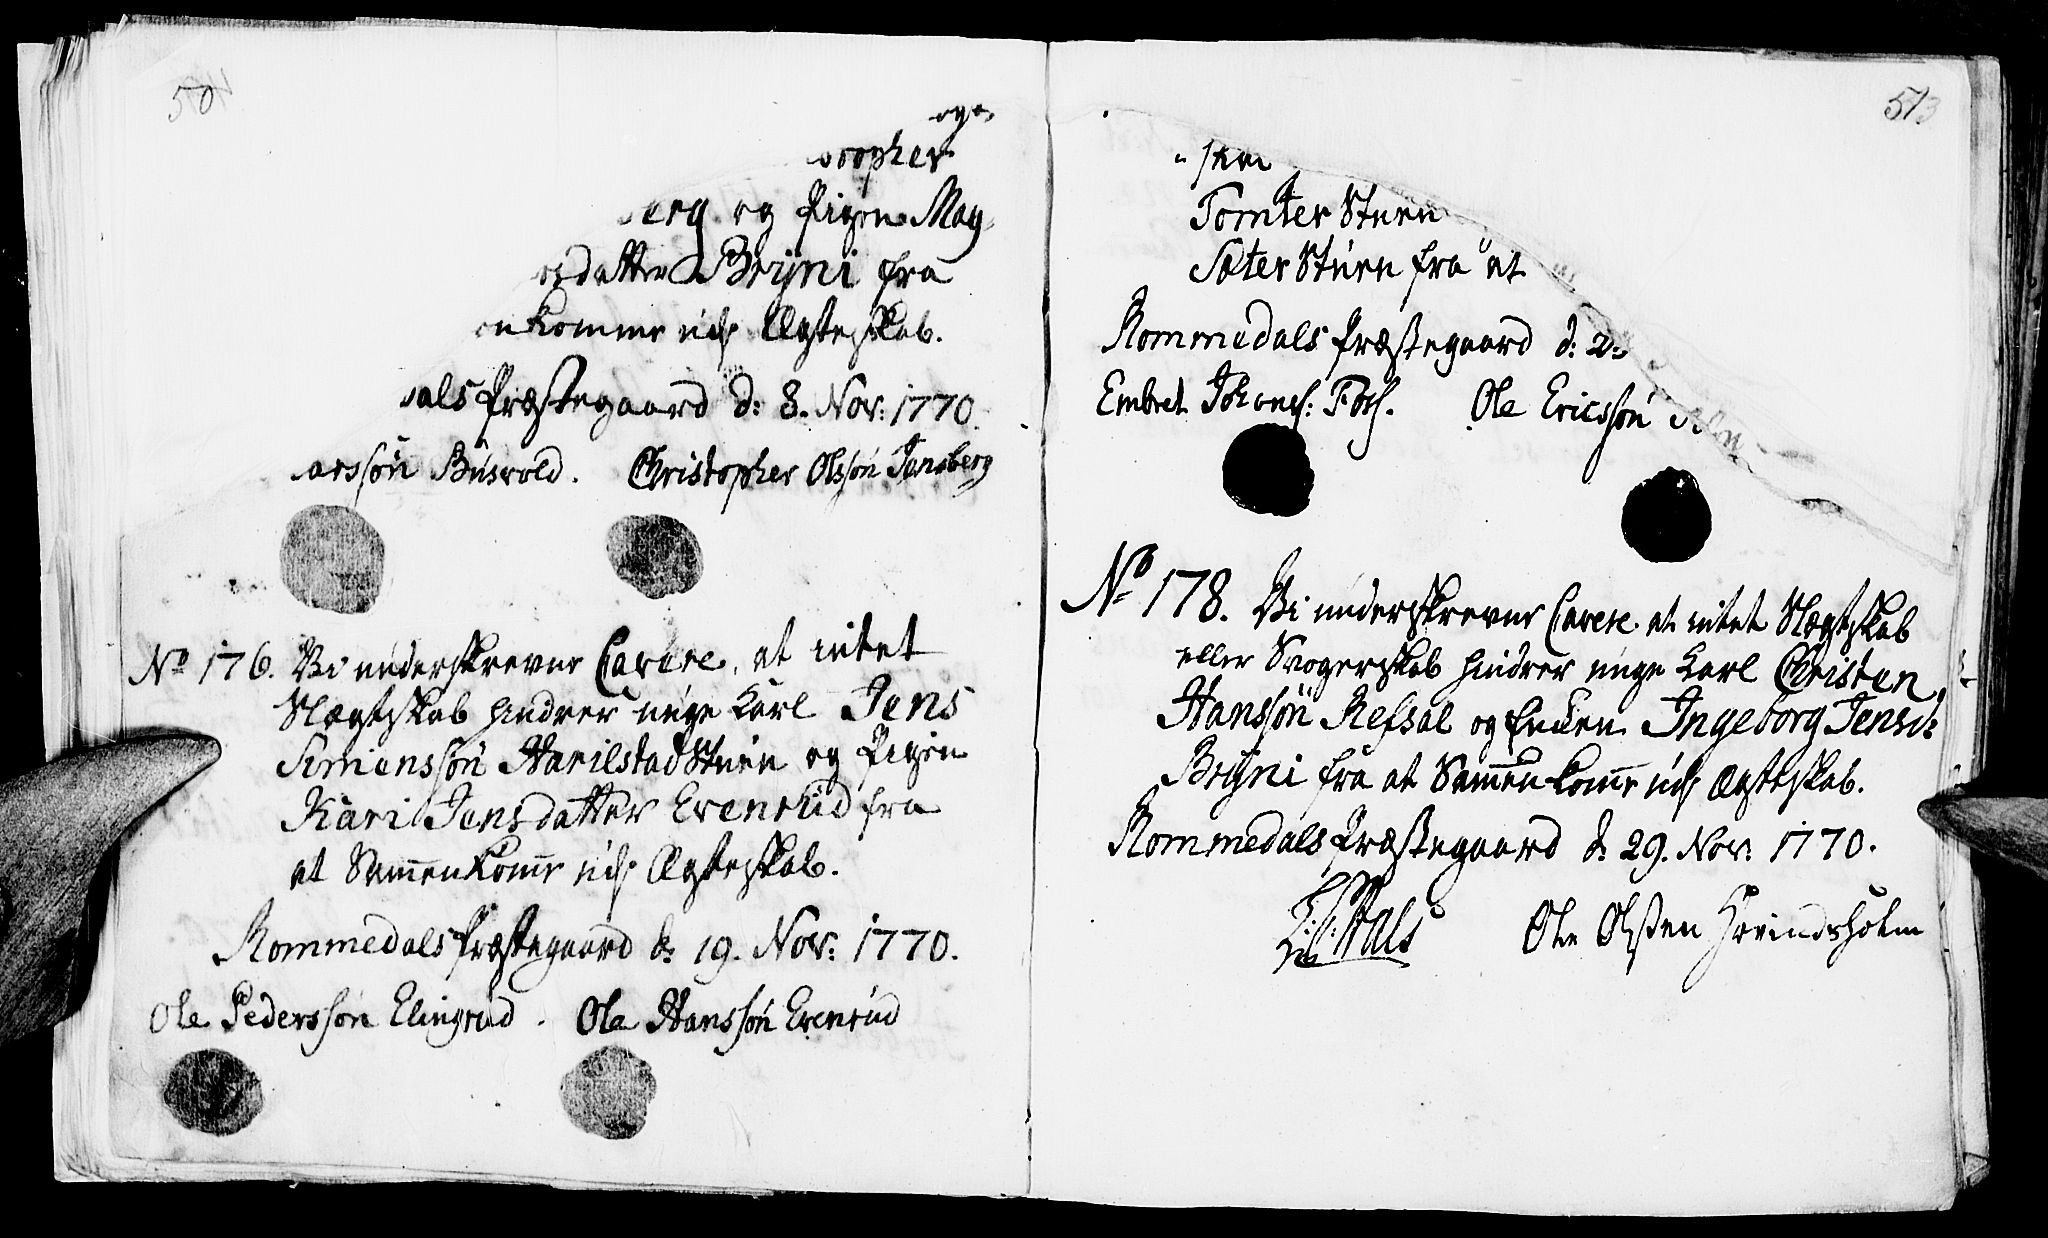 50
oge
topher
berg og Pigen Mag
datter Bryni fra
en komme udi Ægteskab.
dals Præstegaard d: 8. Nov: 1770.
arssøn Busvold. Christopher Olssøn Jønsberg
No 176. Vi underskrevne Cavere, at intet
Slægtskab hindrer unge Karl Jens
Simenssøn HarilstadStuen og Pigen
Kari Jensdatter Evenrud fra
at Sam̅enkom̅e udi Ægteskab.
Rommedals Præstegaard d: 19. Nov: 1770.
Ole Pederssøn Elingrud. Ole Hanssøn Evenrud
51
TomterStuen
SæterStuen fra at
Rommedals Præstegaard d: 2
Embret Johanes: Foss. Ole Ericssøn
No 178. Vi underskrevne Cavere at intet Slægtskab
eller Svogerskab hindrer unge Karl Christen
Hanssøn Refsal og Enken Ingeborg Jensd:
Bryni fra at Sam̅enkom̅e udi Ægteskab.
Rommedals Præstegaard d: 29. Nov: 1770.
Ole Olsten Hovindsholm